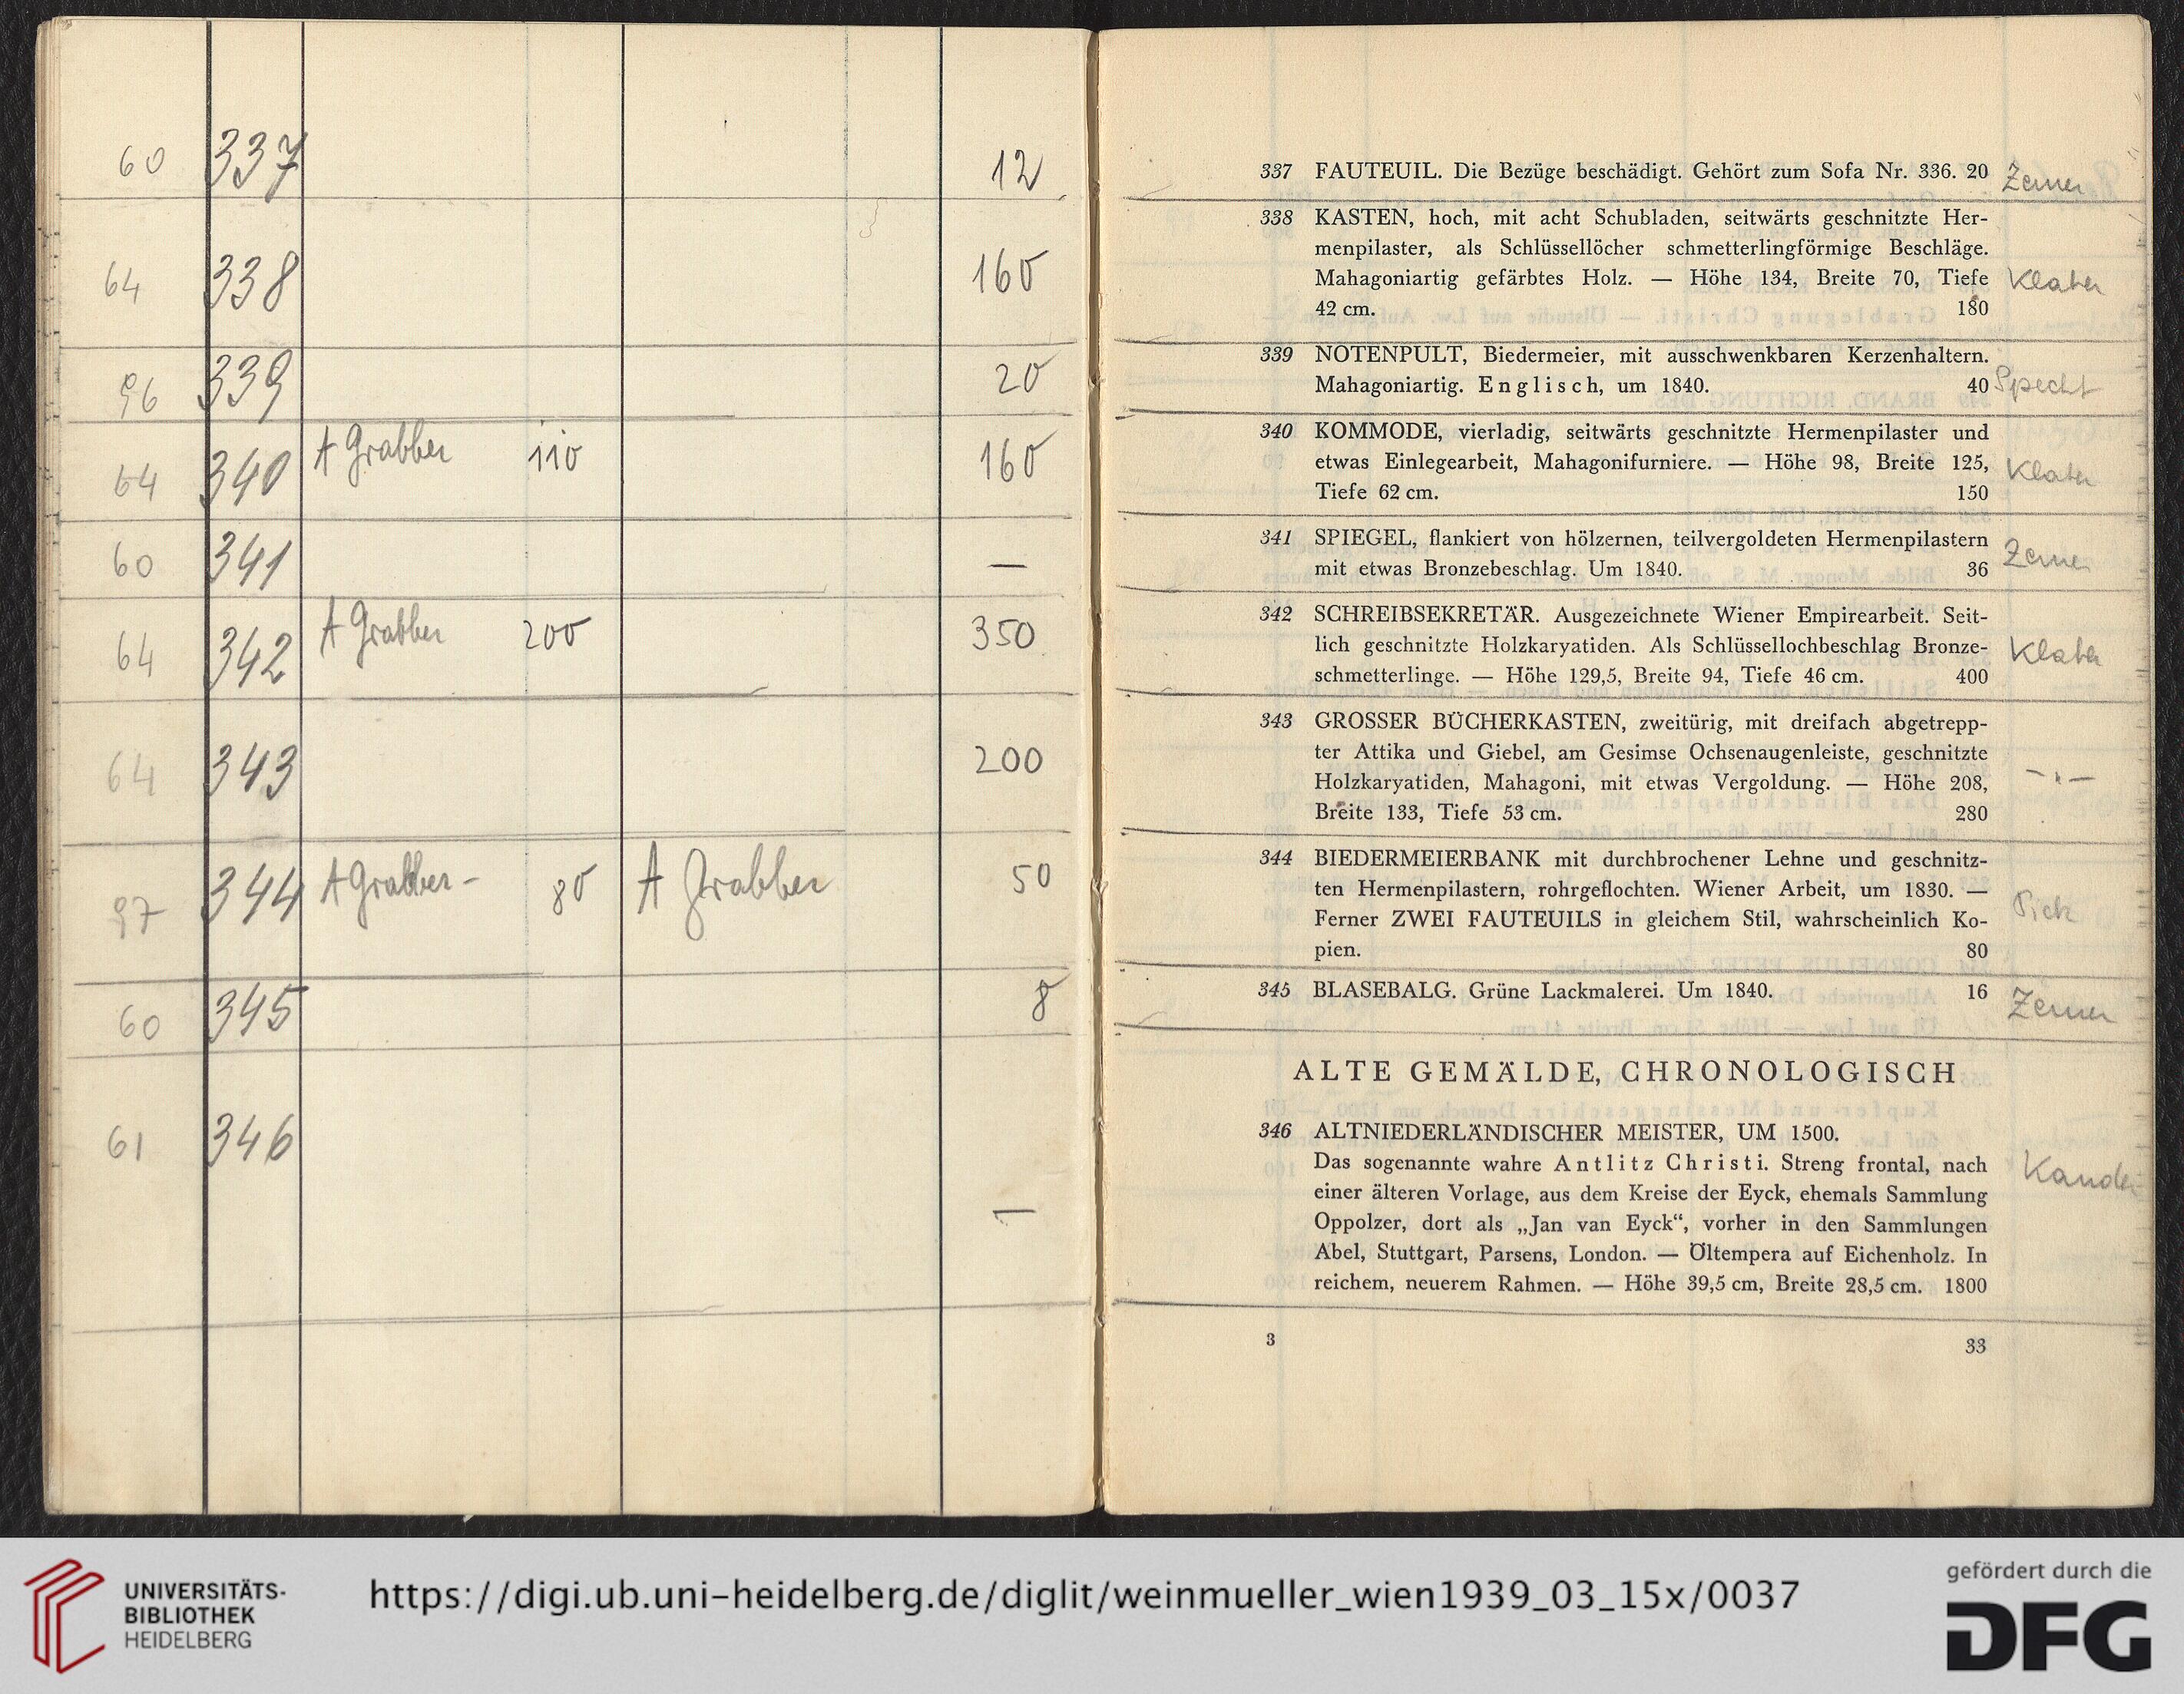 60 337 12
64 338 160
96 339 20
64 340 A Grabher 110 160
60 341 —
64 342 A Grabher 200 350
64 343 200
97 344 A Grabher - 80 A Grabher 50
60 345 8
61 346
—
337 FAUTEUIL. Die Bezüge beschädigt. Gehört zum Sofa Nr. 336. 20
338 KASTEN, hoch, mit acht Schubladen, seitwärts geschnitzte Her-
menpilaster, als Schlüssellöcher schmetterlingförmige Beschläge.
Mahagoniartig gefärbtes Holz. — Höhe 134, Breite 70, Tiefe
42 cm. 180
339 NOTENPULT, Biedermeier, mit ausschwenkbaren Kerzenhaltern.
Mahagoniartig. Englisch, um 1840. 40 Specht
340 KOMMODE, vierladig, seitwärts geschnitzte Hermenpilaster und
etwas Einlegearbeit, Mahagonifurniere. — Höhe 98, Breite 125,
Tiefe 62 cm. 150
341 SPIEGEL, flankiert von hölzernen, teilvergoldeten Hermenpilastern
mit etwas Bronzebeschlag. Um 1840. 36
342 SCHREIBSEKRETÄR. Ausgezeichnete Wiener Empirearbeit. Seit-
lich geschnitzte Holzkaryatiden. Als Schlüssellochbeschlag Bronze-
schmetterlinge. — Höhe 129,5, Breite 94, Tiefe 46 cm. 400
343 GROSSER BÜCHERKASTEN, zweitürig, mit dreifach abgetrepp-
ter Attika und Giebel, am Gesimse Ochsenaugenleiste, geschnitzte
Holzkaryatiden, Mahagoni, mit etwas Vergoldung. — Höhe 208, —"—
Breite 133, Tiefe 53 cm. 280
344 BIEDERMEIERBANK mit durchbrochener Lehne und geschnitz-
ten Hermenpilastern, rohrgeflochten. Wiener Arbeit, um 1830. —
Ferner ZWEI FAUTEUILS in gleichem Stil, wahrscheinlich Ko- Pick
pien. 80
345 BLASEBALG. Grüne Lackmalerei. Um 1840. 16
ALTE GEMÄLDE, CHRONOLOGISCH
346 ALTNIEDERLÄNDISCHER MEISTER, UM 1500.
Das sogenannte wahre Antlitz Christi. Streng frontal, nach
einer älteren Vorlage, aus dem Kreise der Eyck, ehemals Sammlung
Oppolzer, dort als „Jan van Eyck“, vorher in den Sammlungen
Abel, Stuttgart, Parsens, London. — Öltempera auf Eichenholz. In
reichem, neuerem Rahmen. — Höhe 39,5 cm, Breite 28,5 cm. 1800
3 33
UNIVERSITÄTS-
BIBLIOTHEK
HEIDELBERG
https://digi.ub.uni-heidelberg.de/diglit/weinmueller_wien1939_03_15x/0037
gefördert durch die
DFG